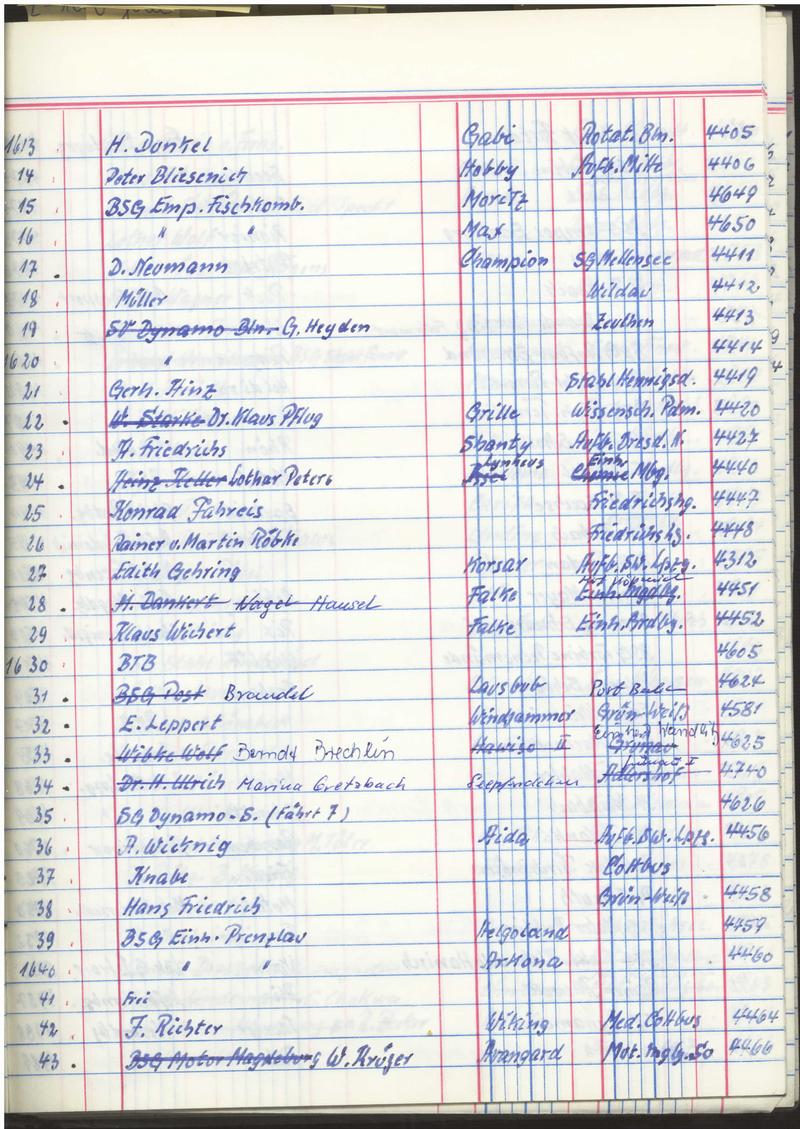 1613 H. Dunkel Gabi Rotat. Bln. 4405
14 Peter Bliesenich Hobby Aufb. Mitte 4406
15 BSG Emp. Fischkomb. Moritz 4649
16 " " Max 4650
17 . D. Neumann Champion SG Mellensee 4411
18 Müller Wildau 4412
19 SV Dynamo Bln. G. Heyden Zeuthen 4413
1620 " 4414
21 Gerh. Hinz Stahl Hennigsd. 4419
22 . W. Starke Dr. Klaus Pflug Grille Wissensch. Pdm. 4420
23 H. Friedrichs Shanty Aufb. Dresd. N. 4427
Lynkeus Einh.
24 . Heinz Keller Lothar Peters Chemie Mbg. 4440
25 Konrad Fahreis Friedrichshg. 4447
26 Rainer u. Martin Röbke Friedrichshg. 4448
27 Edith Gehring Korsar Aufb. SW. Lpzg. 4312
28 . H. Dankert Nagel Hansel Falke Einh. Mgdbg. 4451
29 Klaus Wichert Falke Einh. Brdbg. 4452
1630 BTB 4605
31 . BSG Post Braudel Lausbub Post Berlin 4624
32 . E. Leppert Windjammer Grün-Weiß 4581
Einheit
33 . Wibke Wolf Bernds Brechlin Hawiso II Grünau 4625
34 . Dr. H. Ulrich Marina Gretzbach Seepferdchen Adlershof 4740
35 SG Dynamo-S. (Fährt 7) 4626
36 A. Wicknig Aida Aufb. SW. Lpzg. 4456
37 Knabe Cottbus
38 Hans Friedrich Grün-Weiß 4458
39 BSG Einh. Prenzlau Helgoland 4459
1640 " " Arkona 4460
41 frei
42 F. Richter Wiking Med. Cottbus 4464
43 . BSG Motor Magdeburg W. Krüger Avangard Mot. Mgbg. So 4466